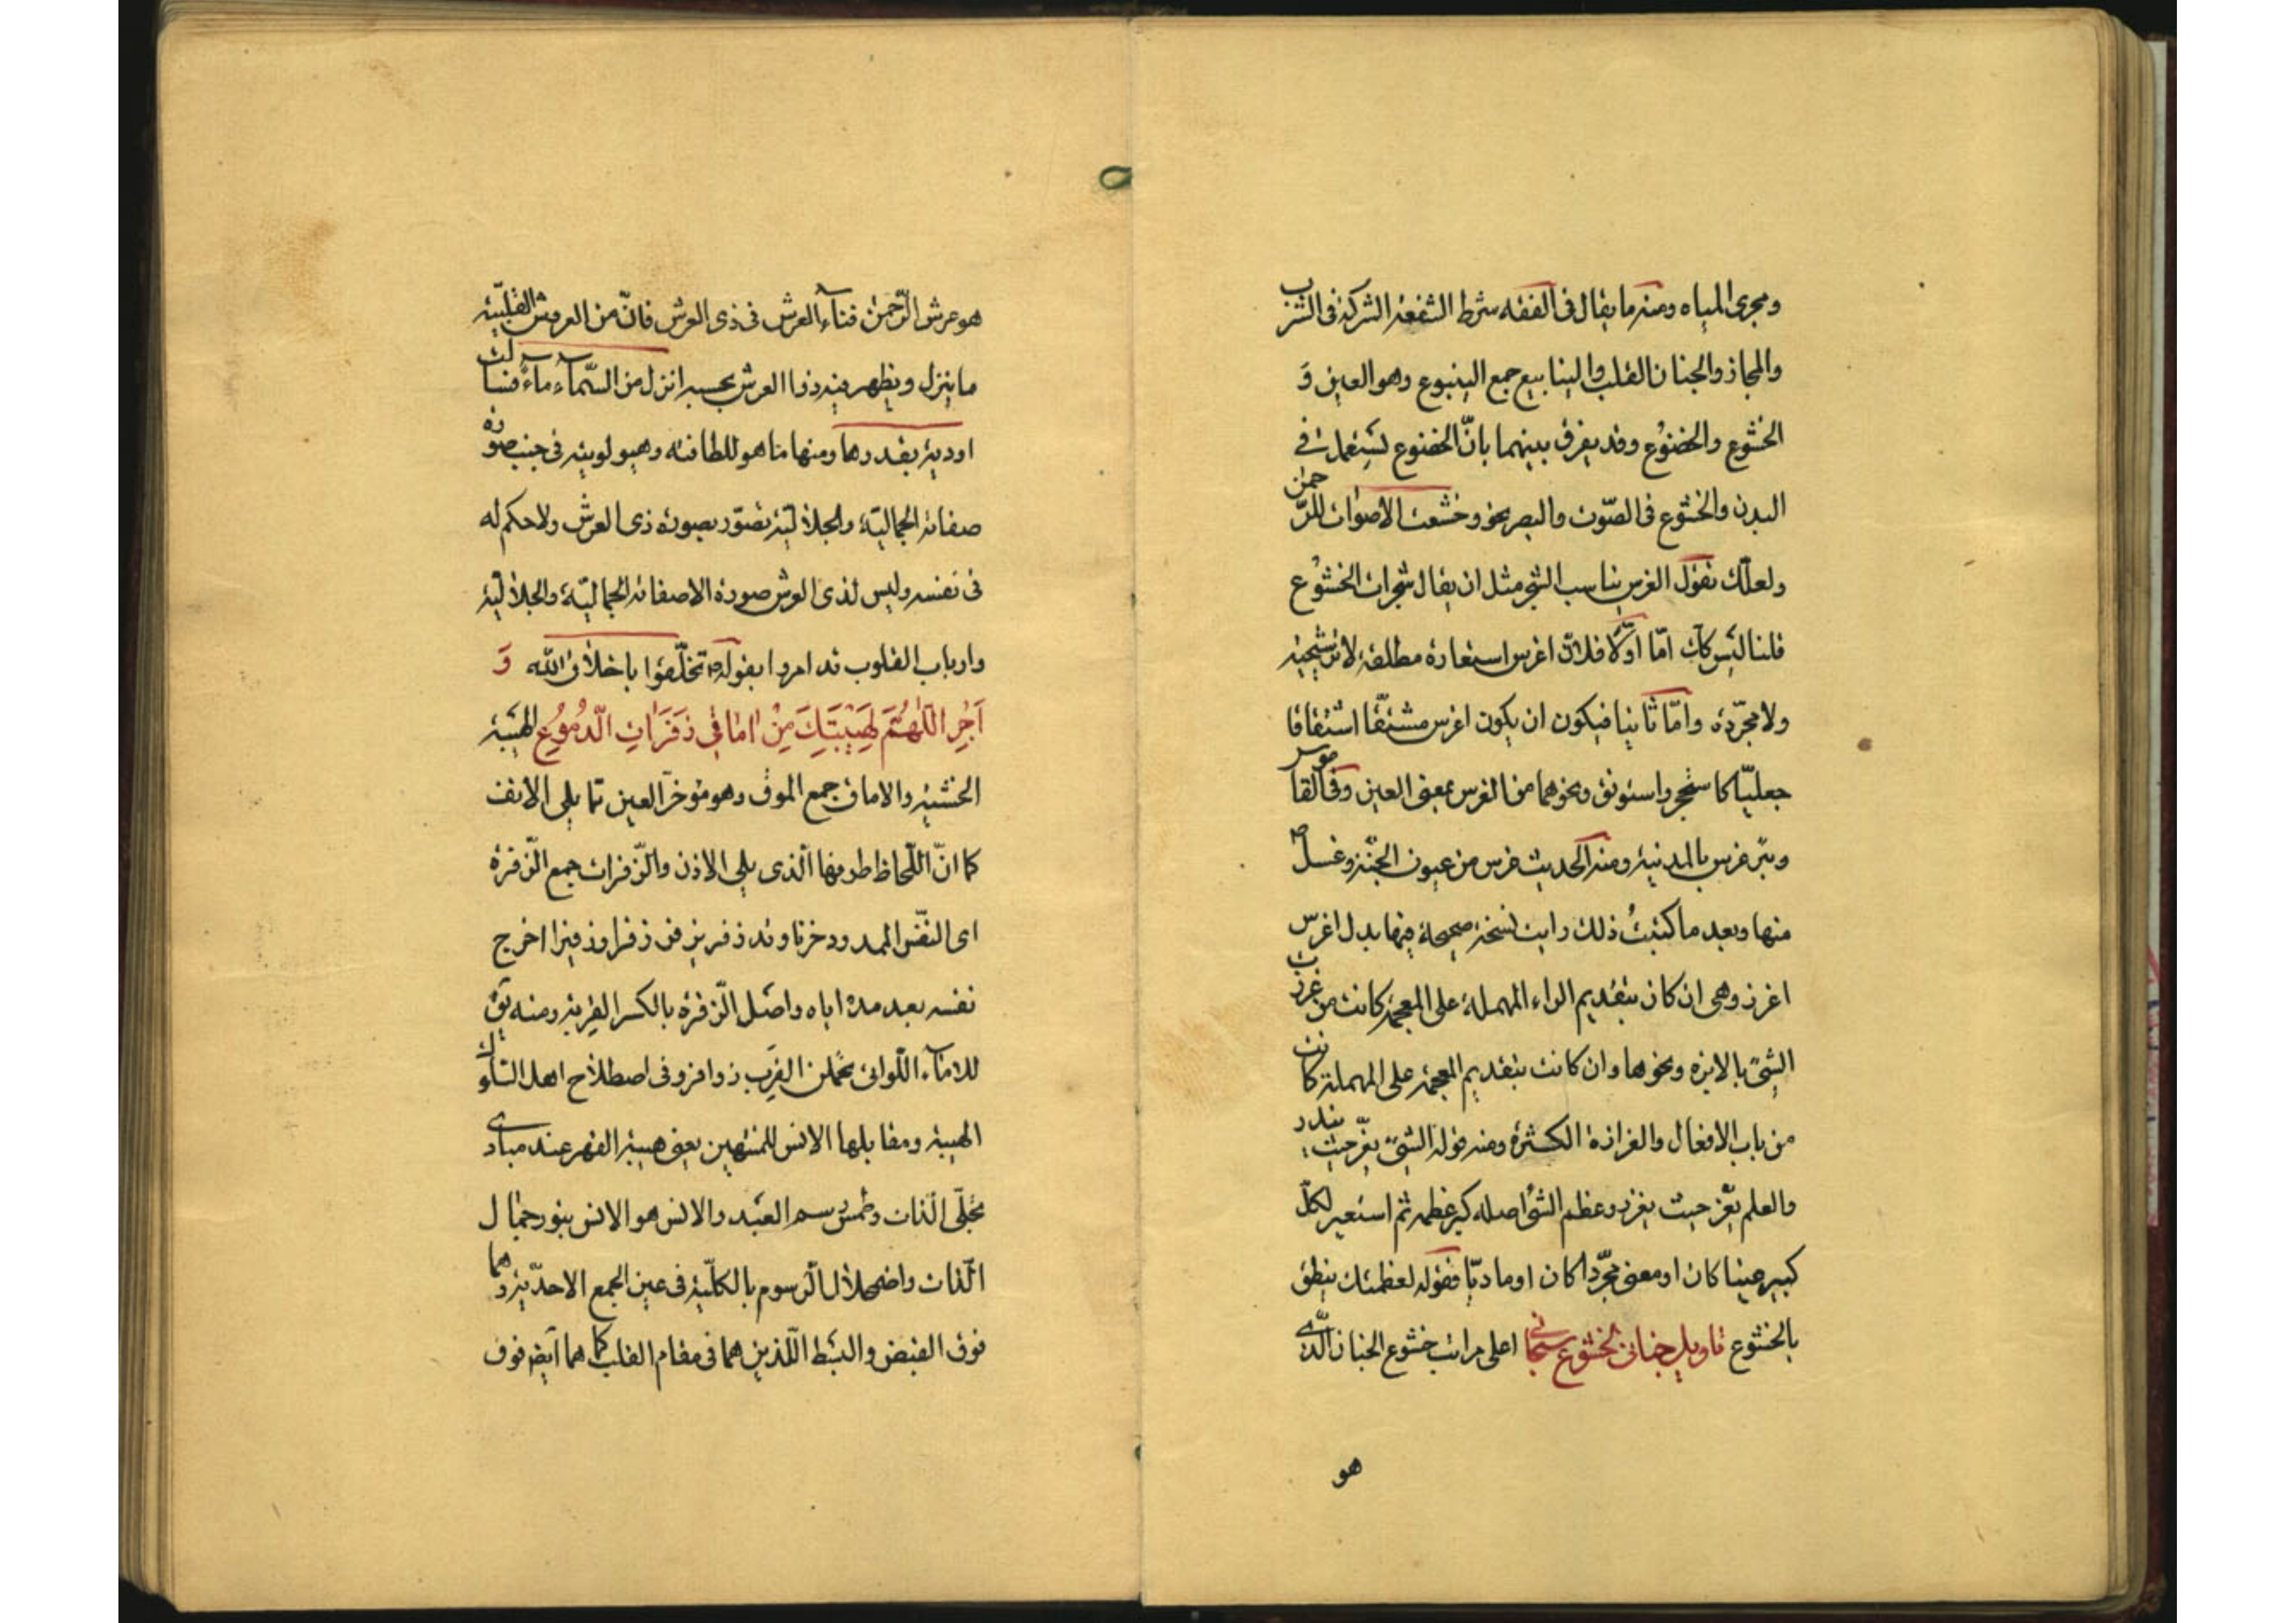 ومجرى المياه ومنه ما يقال فى الفقه شرط الشفعة الشركة فى الشرب
والمجاز والجنان القلب والينابيع جمع الينبوع وهو العين وَ
الخشوع والخضوع وقد يفرق بينهما بانّ الخضوع يستعمل فى
البدن والخشوع فى الصّوت والبصر نحو وخشعت الاصوات للرّحمن
ولعلّك تقول الغرس يناسب الشجر مثل ان يقال شجرات الخشوع
قلنا ليس كك امّا اوّلا فلانّ اغرس استعارة مطلقة لا ترشيحية
ولا مجرّدة وامّا ثانيا فيكون ان يكون اغرس مشتقّا اشتقاقا
جعليّا كاستحجر واستونق ونحوهما من الغرس بمعنى العين وفى القاموس
وبئر غرس بالمدنية ومنه الحديث غرس من عيون الجنّة وغسل ص
منها وبعد ما كتبتُ ذلك رايت نسخة صحيحة فيها بدل اغرس
اغرز وهى ان كان بتقديم الراء المهملة على المعجمة كانت من غرزت
الشئ بالابرة ونحوها وان كانت بتقديم المعجمة على المهملة كانت
من باب الافعال والغرازة الكثرة ومنه قوله الشئ يعزّ حيث يندر
والعلم يعزّ حيث يغزر وعظم الشئ اصله كبر عظمه ثم استعير لكلّ
كبير عينا كان او معنى مجرّدا كان او ماديّا فقوله لعظمتك ينطق
بالخشوع تاويل جنانى لخشوع سبحانى اعلى مراتب خشوع الجنان الّذى
هو
هو عرش الرّحمن فناء العرش فى ذى العرش فانّ من العروش القلبيّة
ما ينزل ويظهر فيه ذوا العرش بحسبه انزل من السّماء ماءً فسالت
اودية بقدرها ومنها ما هو للطافته وهيولويته فى جنب صورة
صفاته الجماليّة والجلاليّة تصوّر بصورة ذى العرش ولا حكم له
فى نفسه وليس لذى العرش صورة الا صفاته الجماليّة والجلاليّة
وارباب القلوب قد امروا بقوله ص تخلّقوا باخلاق الله وَ
اَجْرِ اللّٰهُمَّ لِهَيْبَتِكَ مِنْ اٰمٰاقٖى زَفَرٰاتِ الدُّمُوعِ الهيبة
الخشية والاماق جمع الموق وهو مؤخر العين ممّا يلى الانف
كما انّ اللّحاظ طرفها الّذى يلى الاذن والزّفرات جمع الزّفرة
اى النفّس الممدود حزنا وقد زفر يزفر زفرا وزفيرا اخرج
نفسه بعد مدة اياه واصل الزّفرة بالكسر القربة ومنه يق
للاماء اللّواتى يحملن القِرَب زوافر وفى اصطلاح اهل السّلوك
الهيبة ومقابلها الانس للمنتهين يعنى هيبة القهر عند مبادى
تجلّى الذات وطمس رسم العبد والانس هو الانس بنور جمال
الّذات واضمحلال الرّسوم بالكلّيّة فى عين الجمع الاحدّية وهما
فوق القبض والبسط اللّذين هما فى مقام القلب كما هما ايضا فوق